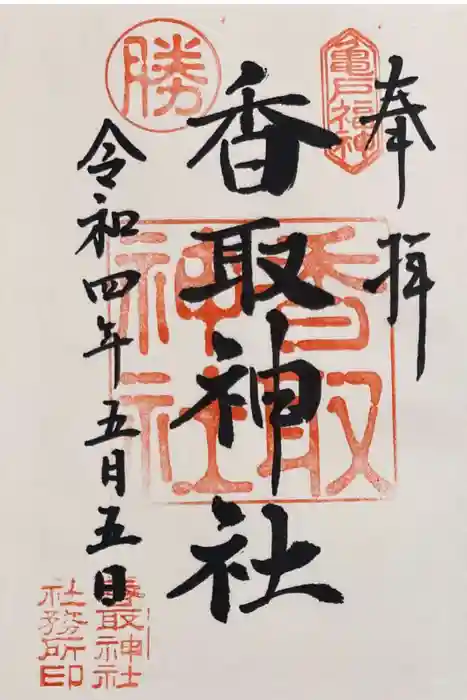 奉拝
亀戸福神
香取神社
香取神社
勝
令和四年五月五日
香取神社
社務所印